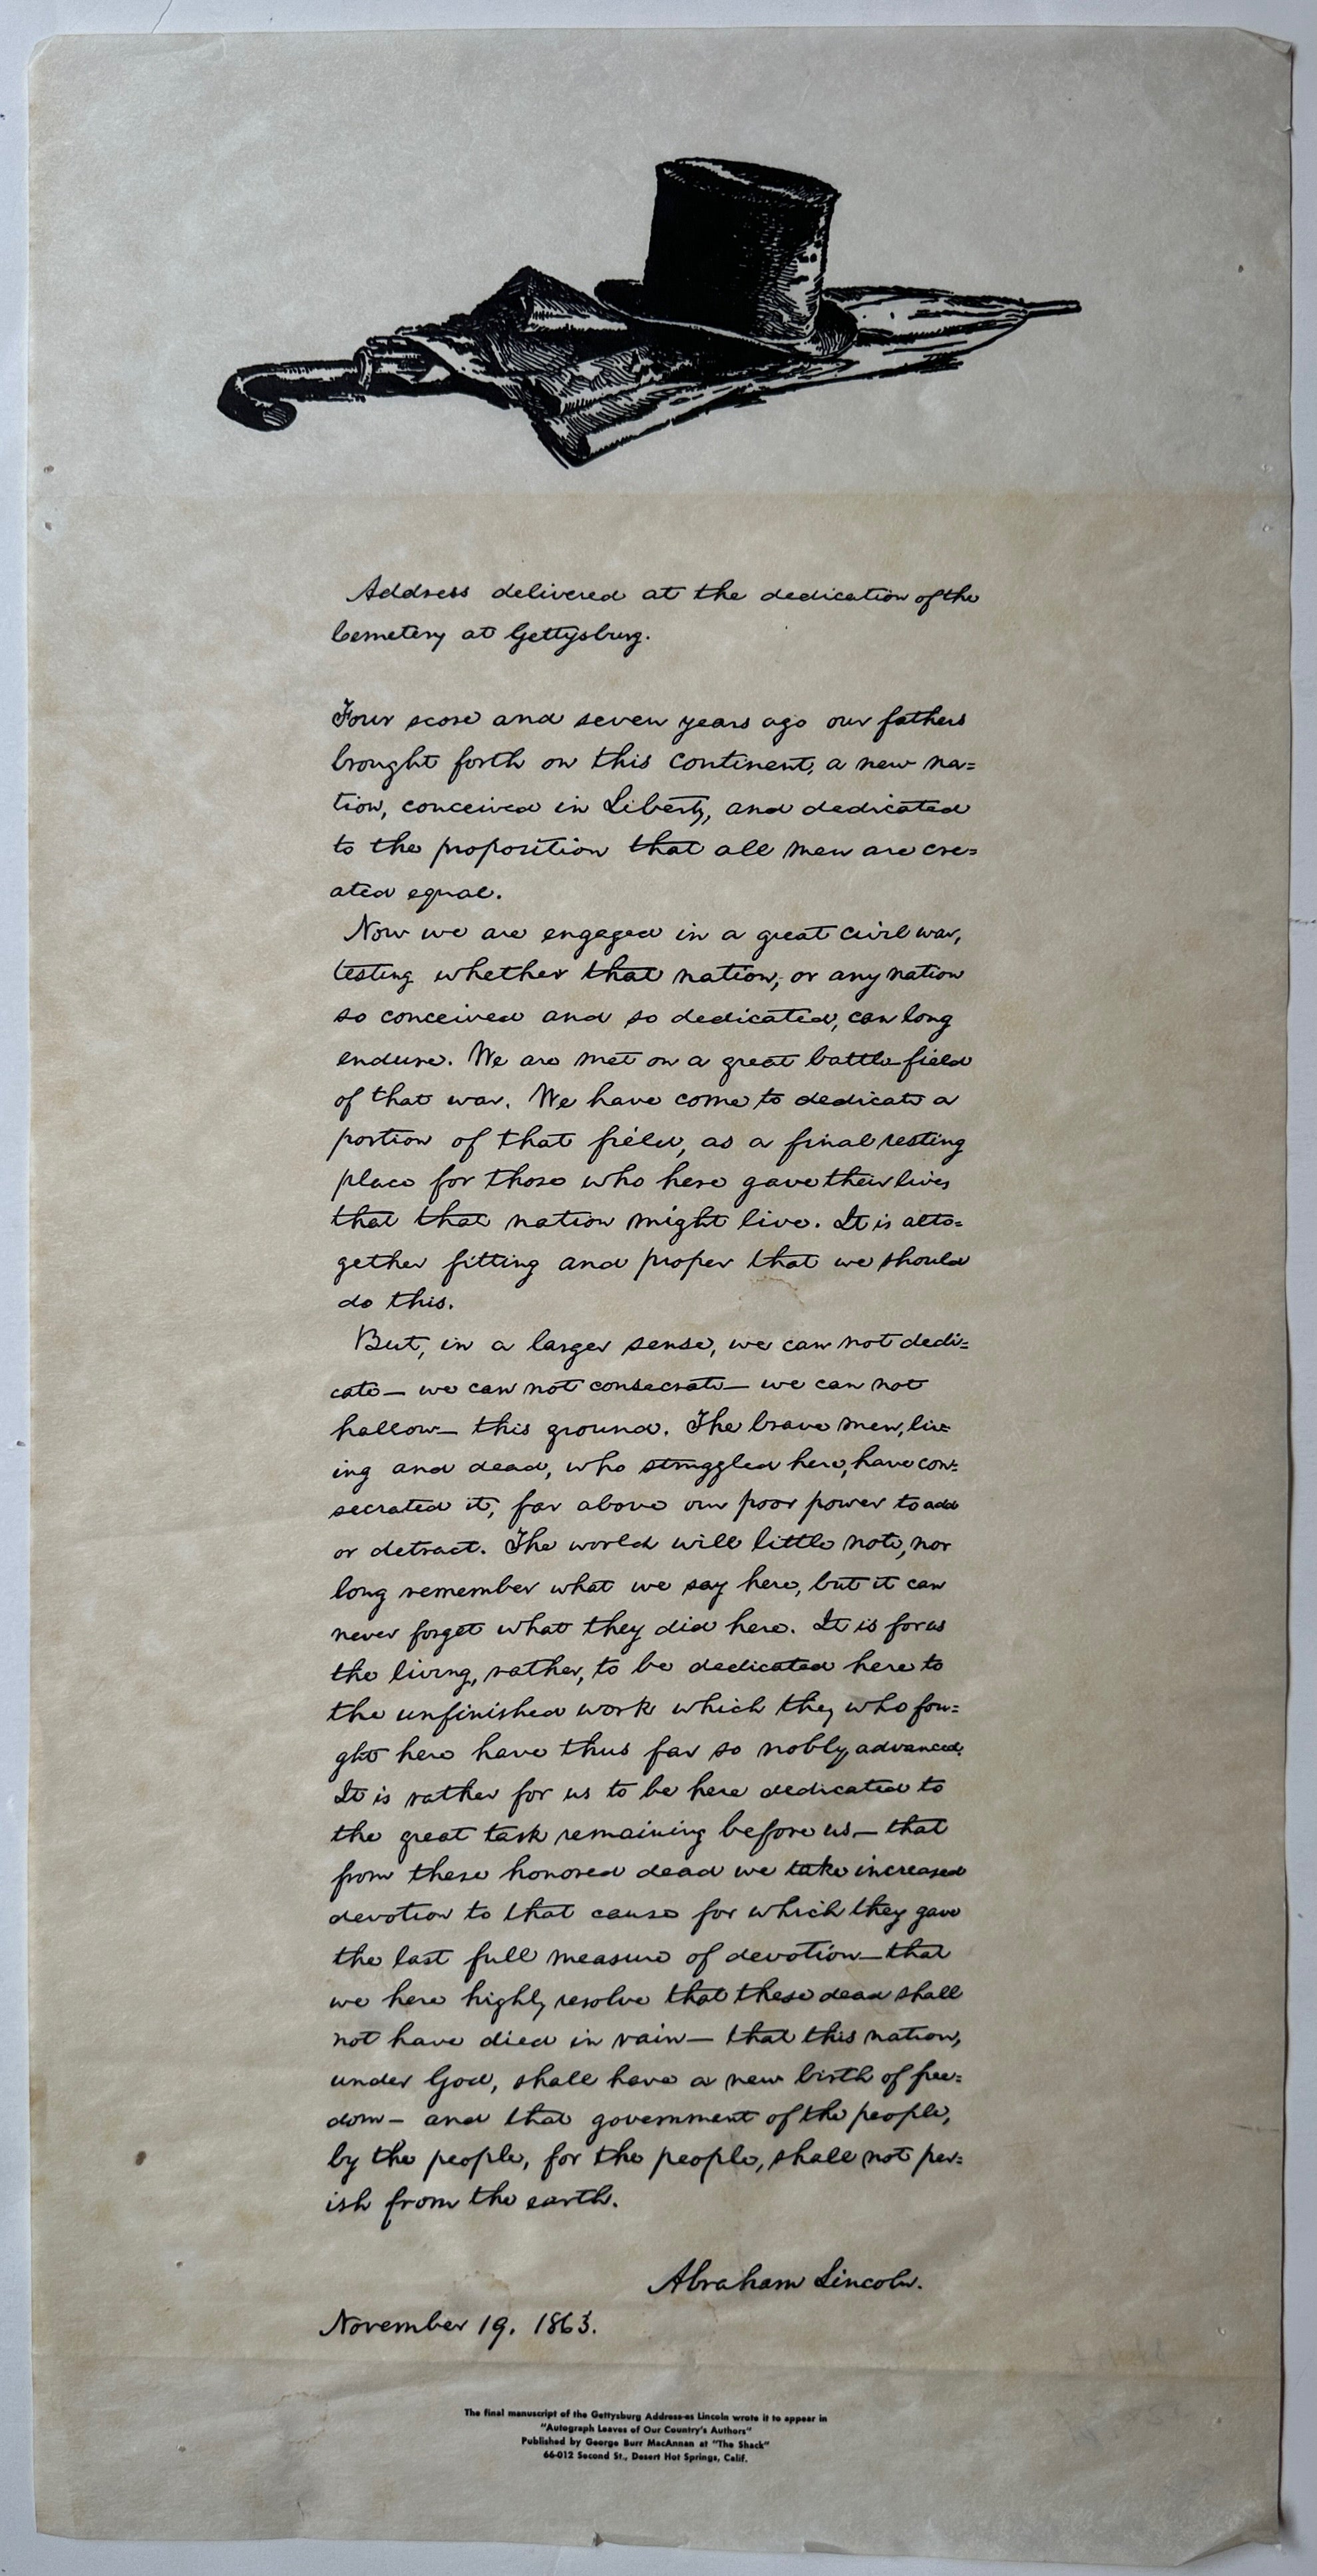 Address delivered at the dedication of the
Cemetery at Gettysburg.
Four score and seven years ago our fathers
brought forth on this continent, a new na=
tion, conceived in Liberty, and dedicated
to the proposition that all men are cre=
ated equal.
Now we are engaged in a great civil war,
testing whether that nation, or any nation
so conceived and so dedicated, can long
endure. We are met on a great battle-field
of that war. We have come to dedicate a
portion of that field, as a final resting
place for those who here gave their lives
that that nation might live. It is alto=
gether fitting and proper that we should
do this.
But, in a larger sense, we can not dedi=
cate— we can not consecrate— we can not
hallow— this ground. The brave men, liv=
ing and dead, who struggled here, have con=
secrated it, far above our poor power to add
or detract. The world will little note, nor
long remember what we say here, but it can
never forget what they did here. It is for us
the living, rather, to be dedicated here to
the unfinished work which they who fou=
ght here have thus far so nobly advanced.
It is rather for us to be here dedicated to
the great task remaining before us— that
from these honored dead we take increased
devotion to that cause for which they gave
the last full measure of devotion— that
we here highly resolve that these dead shall
not have died in vain— that this nation,
under God, shall have a new birth of free=
dom— and that government of the people,
by the people, for the people, shall not per=
ish from the earth.
Abraham Lincoln.
November 19, 1863.
The final manuscript of the Gettysburg Address-as Lincoln wrote it to appear in
"Autograph Leaves of Our Country's Authors"
Published by George Burr MacAnnan at "The Shack"
66-012 Second St., Desert Hot Springs, Calif.